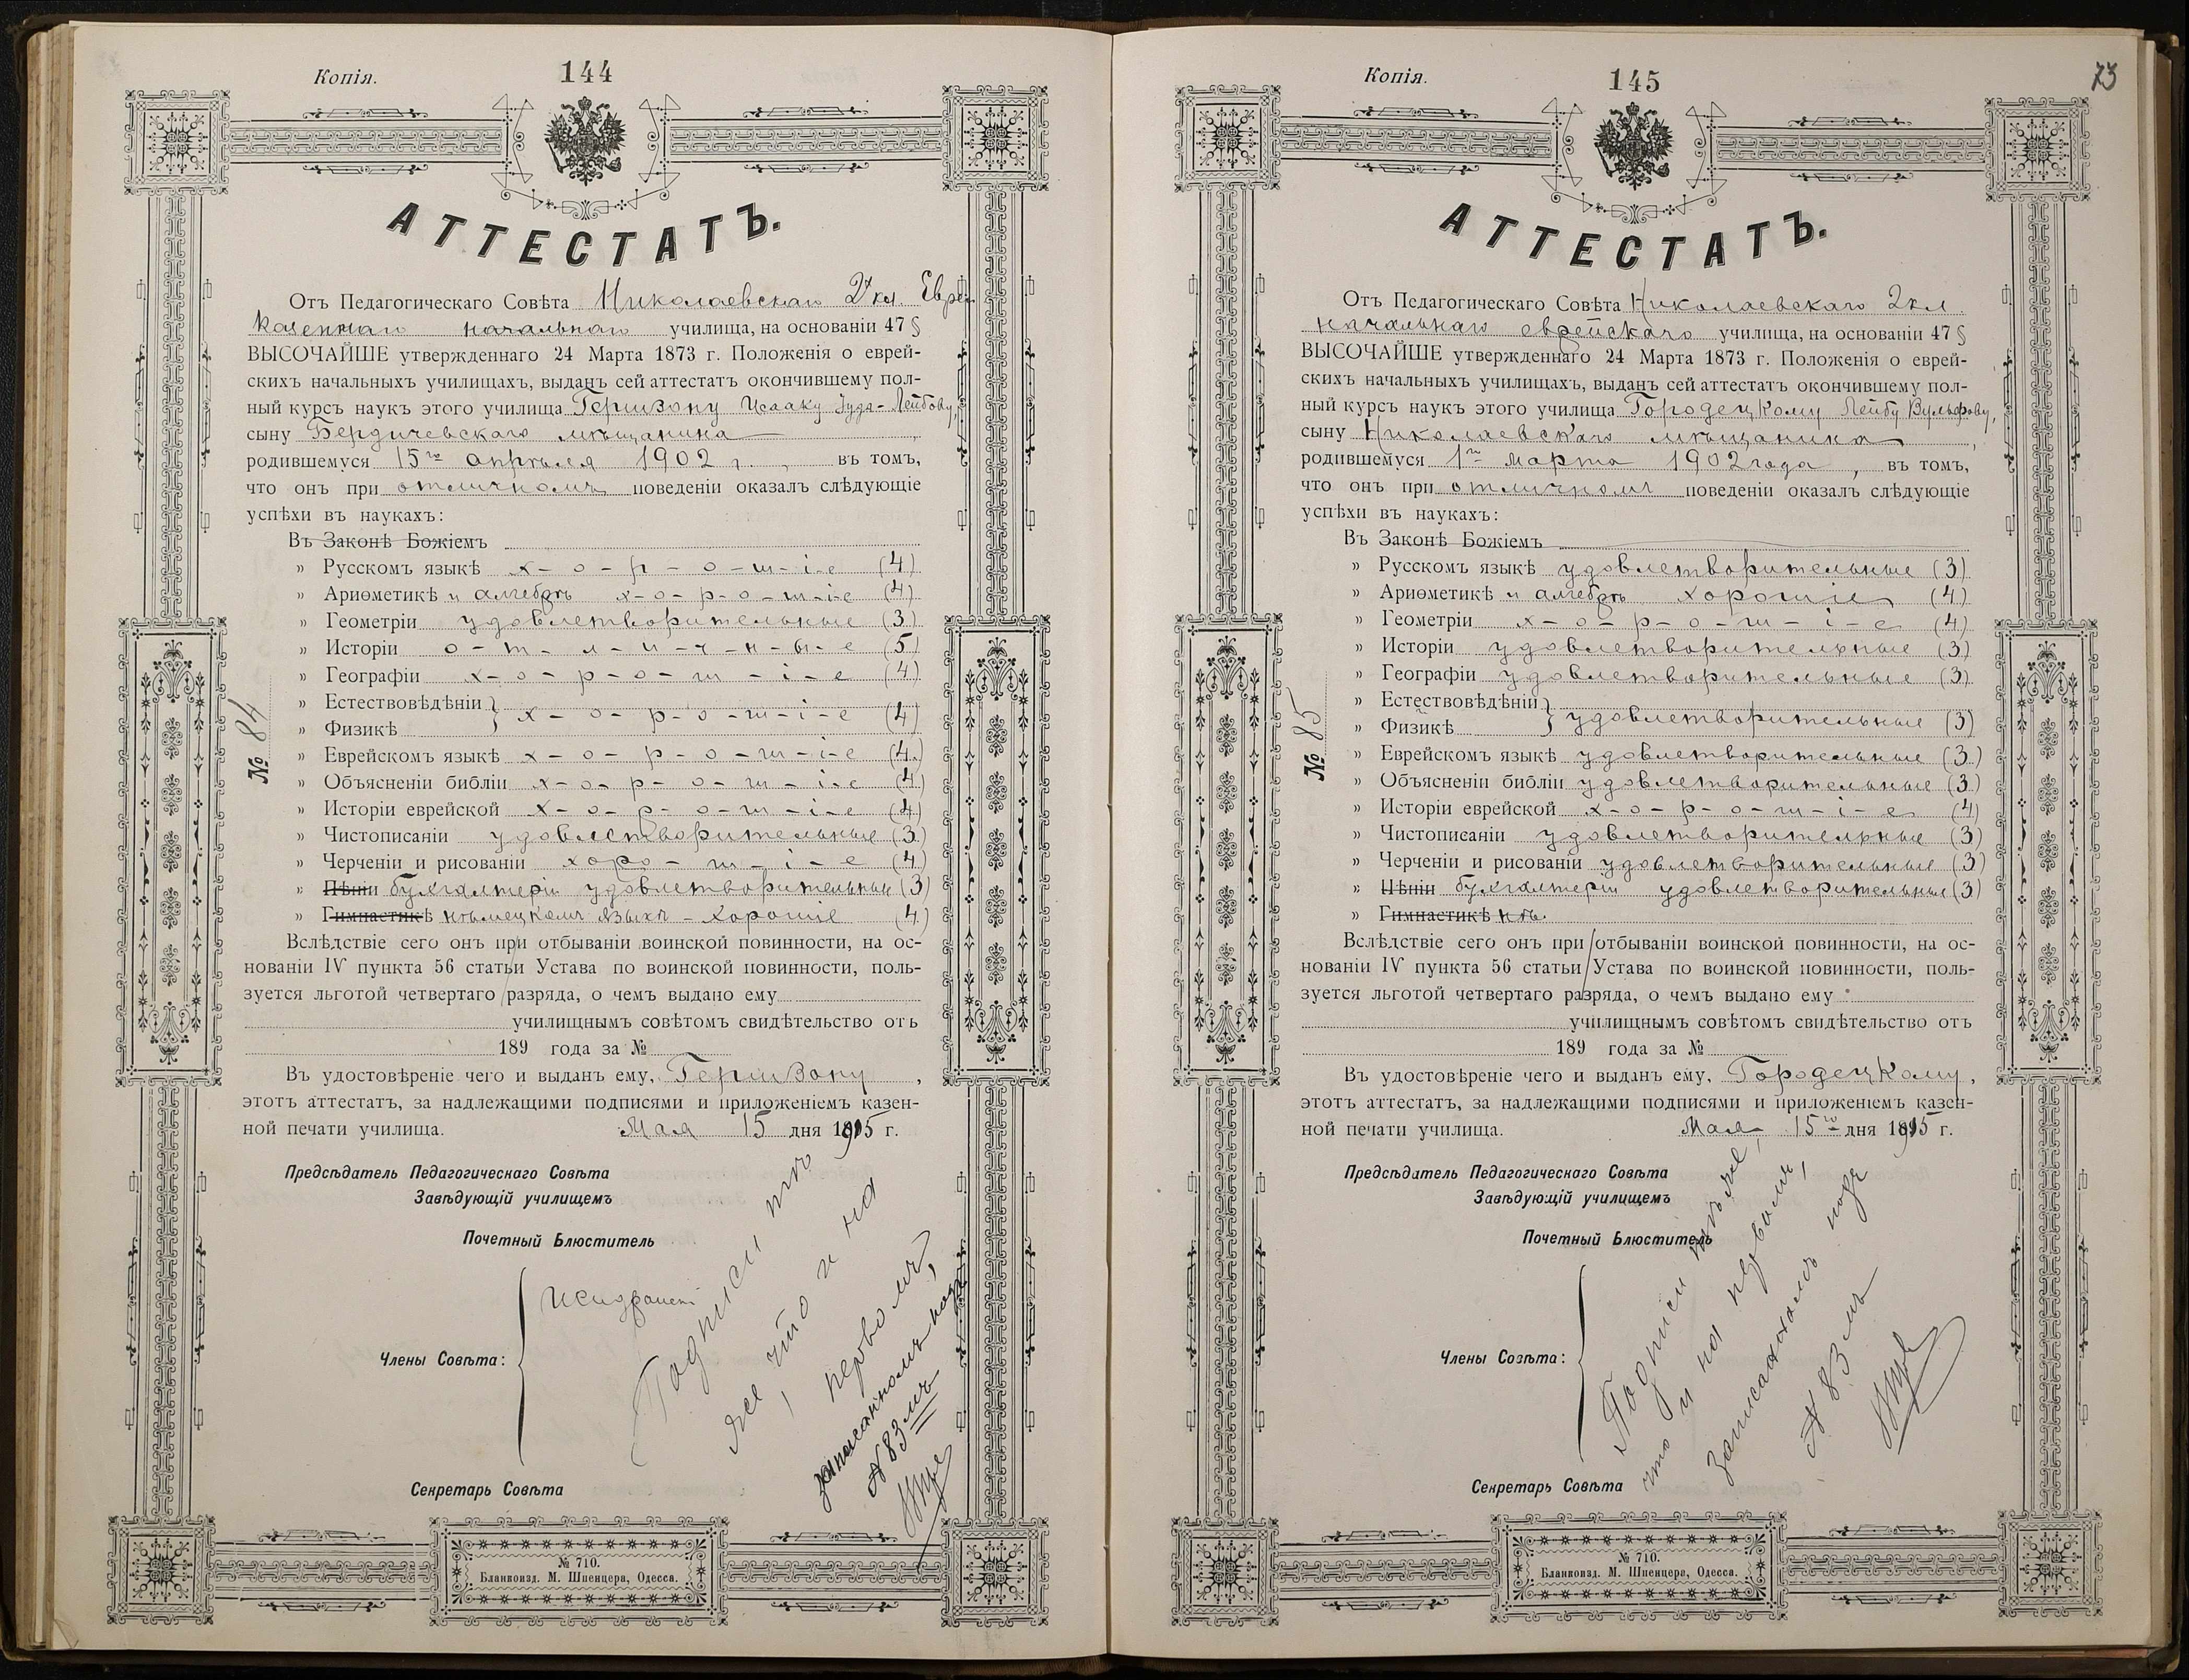 Копія.
144
АТТЕСТАТЪ.
Отъ Педагогическаго Совѣта Николаевскаго 2х кл. Еврей
Казеннаго начальнаго училища, на основаніи 47 §
ВЫСОЧАЙШЕ утвержденнаго 24 Марта 1873 г. Положенія о еврей-
скихъ начальныхъ училищахъ, выданъ сей аттестатъ окончившему пол-
ный курсъ наукъ этого училища Гершзону Исааку Іуда-Лейбову,
сыну Бердичевскаго мѣщанина
родившемуся 15го апрѣля 1902 г., въ томъ,
что онъ при отличномъ поведеніи оказалъ слѣдующіе
успѣхи въ наукахъ:
Въ Законѣ Божіемъ
» Русскомъ языкѣ х-о-р-о-ш-і-е (4)
» Ариѳметикѣ и алгебрѣ х-о-р-о-ш-і-е (4)
» Геометріи удовлетворительные (3)
» Исторіи о-т-л-и-ч-н-ы-е (5)
» Географіи х-о-р-о-ш-і-е (4)
» Естествовѣдѣніи }
» Физикѣ } х-о-р-о-ш-і-е (4)
» Еврейскомъ языкѣ х-о-р-о-ш-і-е (4)
» Объясненіи библіи х-о-р-о-ш-і-е (4)
» Исторіи еврейской х-о-р-о-ш-і-е (4)
» Чистописаніи удовлетворительные (3)
» Черченіи и рисованіи хоро-ш-і-е (4)
» Пѣніи бухгалтеріи удовлетворительные (3)
» Гимнастикѣ нѣмецкомъ языкѣ - хорошіе (4)
№ 84
Вслѣдствіе сего онъ при отбываніи воинской повинности, на ос-
нованіи IV пункта 56 статьи Устава по воинской повинности, поль-
зуется льготой четвертаго разряда, о чемъ выдано ему
училищнымъ совѣтомъ свидѣтельство отъ
189 года за №
Въ удостовѣреніе чего и выданъ ему, Гершзону,
этотъ аттестатъ, за надлежащими подписями и приложеніемъ казен-
ной печати училища. Мая 15 дня 1915 г.
Предсѣдатель Педагогическаго Совѣта
Завѣдующій училищемъ
Почетный Блюститель
Члены Совѣта:
Секретарь Совѣта
Подписи тѣ
же что и на
первомъ,
записанномъ подъ
№ 83 мъ
№ 710.
Бланкоизд. М. Шпенцера, Одесса.
Копія.
145
73
АТТЕСТАТЪ.
Отъ Педагогическаго Совѣта Николаевскаго 2 кл.
начальнаго еврейскаго училища, на основаніи 47 §
ВЫСОЧАЙШЕ утвержденнаго 24 Марта 1873 г. Положенія о еврей-
скихъ начальныхъ училищахъ, выданъ сей аттестатъ окончившему пол-
ный курсъ наукъ этого училища Городецкому Лейбу Вульфову,
сыну Николаевскаго мѣщанина,
родившемуся 1го марта 1902 года, въ томъ,
что онъ при отличномъ поведеніи оказалъ слѣдующіе
успѣхи въ наукахъ:
Въ Законѣ Божіемъ
» Русскомъ языкѣ удовлетворительные (3)
» Ариѳметикѣ и алгебрѣ хорошіе (4)
» Геометріи х-о-р-о-ш-і-е (4)
» Исторіи удовлетворительные (3)
» Географіи удовлетворительные (3)
» Естествовѣдѣніи }
» Физикѣ } удовлетворительные (3)
» Еврейскомъ языкѣ удовлетворительные (3)
» Объясненіи библіи удовлетворительные (3)
» Исторіи еврейской х-о-р-о-ш-і-е (4)
» Чистописаніи удовлетворительные (3)
» Черченіи и рисованіи удовлетворительные (3)
» Пѣніи бухгалтеріи удовлетворительные (3)
» Гимнастикѣ нѣ.
№ 85
Вслѣдствіе сего онъ при отбываніи воинской повинности, на ос-
нованіи IV пункта 56 статьи Устава по воинской повинности, поль-
зуется льготой четвертаго разряда, о чемъ выдано ему
училищнымъ совѣтомъ свидѣтельство отъ
189 года за №
Въ удостовѣреніе чего и выданъ ему, Городецкому,
этотъ аттестатъ, за надлежащими подписями и приложеніемъ казен-
ной печати училища. Мая 15го дня 1915 г.
Предсѣдатель Педагогическаго Совѣта
Завѣдующій училищемъ
Почетный Блюститель
Члены Совѣта:
Секретарь Совѣта
Подписи тѣ же,
что и на первомъ,
записанномъ подъ
№ 83 мъ
№ 710.
Бланкоизд. М. Шпенцера, Одесса.